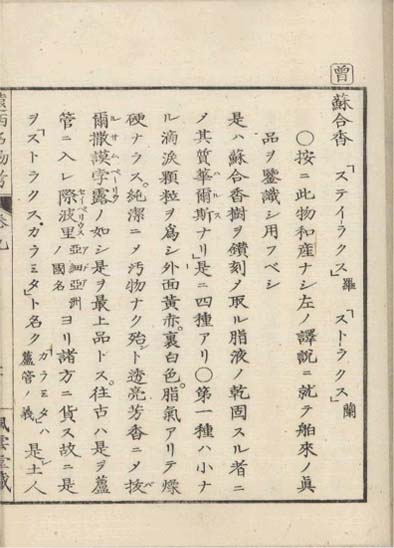 曾
蘇合香 「ステイラクス」羅 「ストラクス」蘭
○按ニ此物和産ナシ左ノ譯説ニ就テ舶來ノ眞
品ヲ鑒識シ用フベシ
是ハ蘇合香樹ヲ鑚刻メ取ル脂液ノ乾固スル者ニ
メ其質華爾斯ハルスナリ」是ニ四種アリ○第一種ハ小ナ
ル滴涙顆粒ヲ爲シ外面黄赤。裏白色。脂氣アリテ燥
硬ナラス。純潔ニメ汚物ナク殆ント透亮芳香ニメ拔バ
爾撒謨孛露ルサムペーリウノ如シ是ヲ最上品トス。往古ハ是ヲ蘆
管ニ入レ際波里セーベリウス亞細亞洲ノ國名ヨリ諸方ニ貨ス故ニ是
ヲ「ストラクス、ガラミタ」ト名ク ガラミタハ蘆管ノ義 是レ土人
遠西名物考 巻九
風雲堂藏